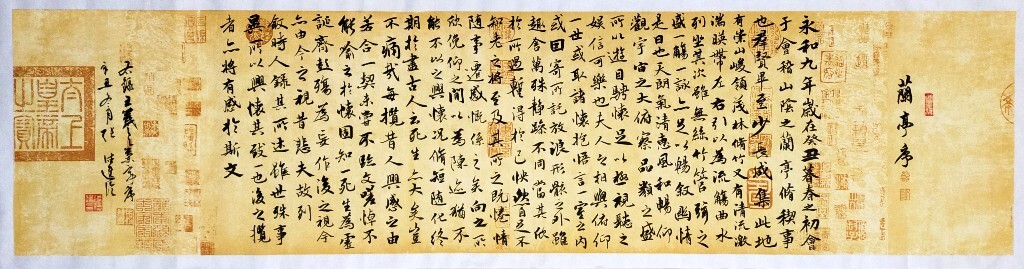 蘭亭序
永和九年歲在癸丑暮春之初會
于會稽山陰之蘭亭脩稧事
也群賢畢至少長咸集此地
有崇山峻領茂林脩竹又有清流激
湍暎帶左右引以為流觴曲水
列坐其次雖無絲竹管弦之
盛一觴一詠上足以暢敘幽情
是日也天朗氣清惠風和暢仰
觀宇宙之大俯察品類之盛
所以遊目騁懷足以極視聽之
娛信可樂也夫人之相與俯仰
一世或取諸懷抱悟言一室之內
或因寄所託放浪形骸之外雖
趣舍萬殊靜躁不同當其欣
於所遇蹔得於己快然自足不
知老之將至及其所之既惓情
隨事遷感慨係之矣向之所
欣俛仰之間以為陳迹猶不
能不以之興懷況脩短隨化終
期於盡古人云死生亦大矣豈
不痛哉每攬昔人興感之由
若合一契未嘗不臨文嗟悼不
能喻之於懷固知一死生為虛
誕齊彭殤為妄作後之視今
亦由今之視昔悲夫故列
敘時人錄其所述雖世殊事
異所以興懷其致一也後之攬
者亦將有感於斯文
右錄王羲之蘭亭序
太上
皇帝
之寶